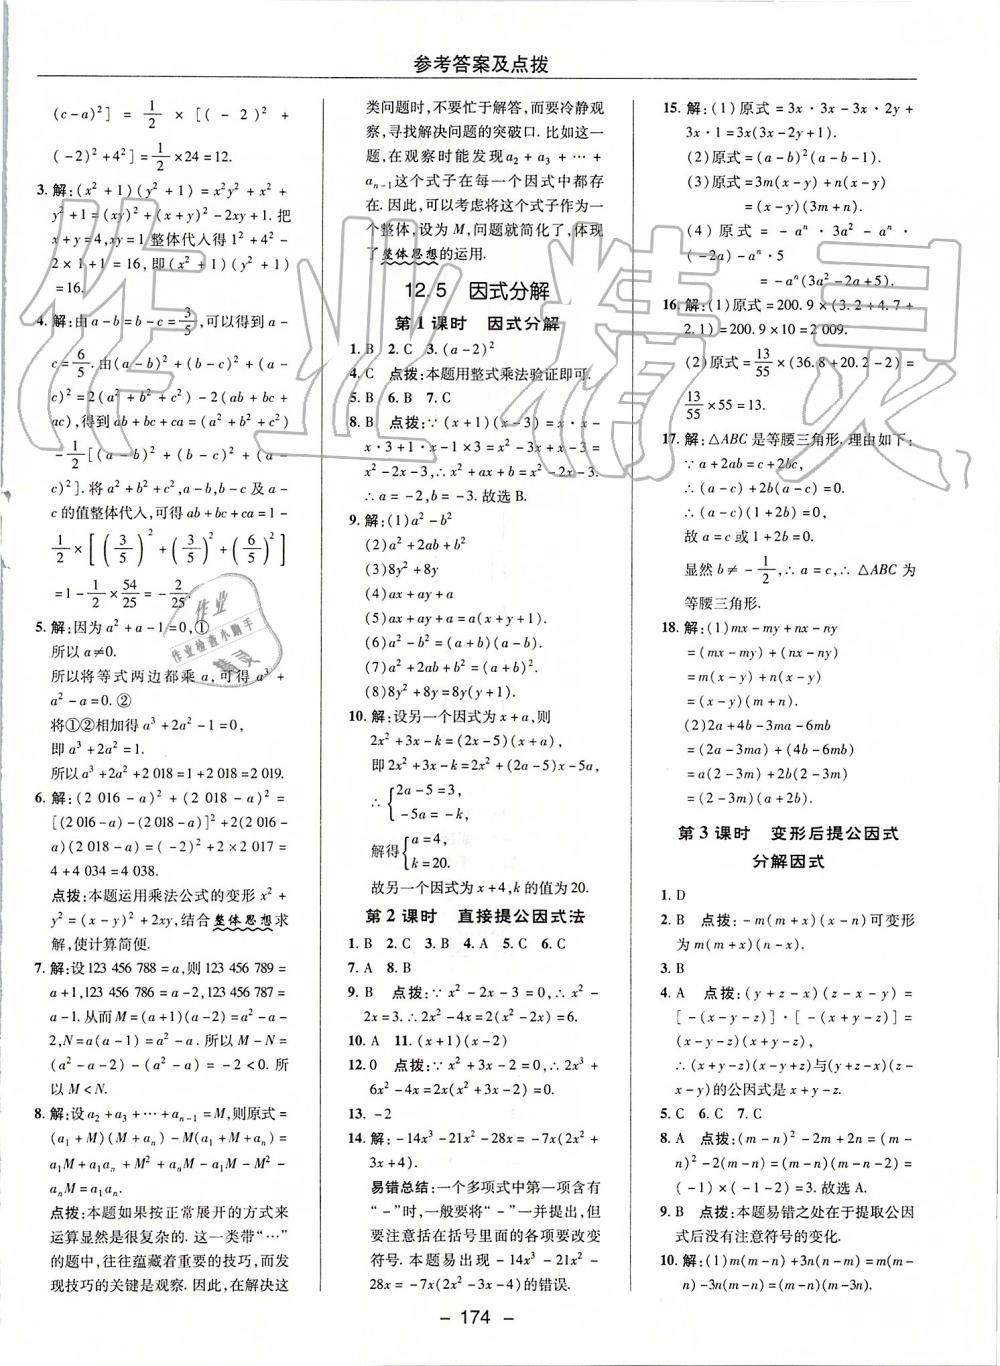 参考答案及点拨
(c-a)²] = 1/2 × [(-2)² +
(-2)²+4²]=1/2×24=12.
3. 解:(x²+1)(y²+1)=x²y²+x²+
y²+1=(xy)²+(x+y)²-2xy+1. 把
x+y=4,xy=1 整体代入得 1²+4²-
2×1+1=16,即(x²+1)(y²+1)
=16.
4. 解:由 a-b=b-c=3/5,可以得到 a-
c=6/5. 由(a-b)²+(b-c)²+(a-
c)²=2(a²+b²+c²)-2(ab+bc+
ac),得到 ab+bc+ca=(a²+b²+c²)
-1/2[(a-b)²+(b-c)²+(a-
c)²]. 将 a²+b²+c²,a-b,b-c 及 a-
c 的值整体代入,可得 ab+bc+ca=1-
1/2×[(3/5)²+(3/5)²+(6/5)²]
=1-1/2×54/25=-2/25.
5. 解:因为 a²+a-1=0,①
所以 a≠0.
所以将等式两边都乘 a,可得 a³+
a²-a=0. ②
将①②相加得 a³+2a²-1=0,
即 a³+2a²=1.
所以 a³+2a²+2 018=1+2 018=2 019.
6. 解:(2 016-a)²+(2 018-a)²=
[(2 016-a)-(2 018-a)]²+2(2 016-
a)(2 018-a)=(-2)²+2×2 017=
4+4 034=4 038.
点拨:本题运用乘法公式的变形 x²+
y²=(x-y)²+2xy,结合整体思想求
解,使计算简便.
7. 解:设 123 456 788=a,则 123 456 789=
a+1,123 456 786=a-2,123 456 787=
a-1. 从而 M=(a+1)(a-2)=a²-a-
2,N=a(a-1)=a²-a. 所以 M-N=
(a²-a-2)-(a²-a)=-2<0. 所
以 M<N.
8. 解:设 a₂+a₃+⋯+aₙ₋₁=M,则原式=
(a₁+M)(M+aₙ)-M(a₁+M+aₙ)=
a₁M+a₁aₙ+M²+aₙM-a₁M-M²-
aₙM=a₁aₙ.
点拨:本题如果按正常展开的方式来
运算显然是很复杂的. 这一类带“⋯”
的题中,往往蕴藏着重要的技巧,而发
现技巧的关键是观察. 因此,在解决这
类问题时,不要忙于解答,而要冷静观
察,寻找解决问题的突破口. 比如这一
题,在观察时能发现 a₂+a₃+⋯+
aₙ₋₁这个式子在每一个因式中都存
在. 因此,可以考虑将这个式子作为一
个整体,设为 M,问题就简化了,体现
了整体思想的运用.
12.5 因式分解
第1课时 因式分解
1. B 2. C 3. (a-2)²
4. C 点拨:本题用整式乘法验证即可.
5. B 6. B 7. C
8. B 点拨:∵(x+1)(x-3)=x·x-
x·3+1·x-1×3=x²-3x+x-3=
x²-2x-3,∴x²+ax+b=x²-2x-3.
∴a=-2,b=-3. 故选 B.
9. 解:(1)a²-b²
(2)a²+2ab+b²
(3)8y²+8y
(4)ax+ay+a
(5)ax+ay+a=a(x+y+1).
(6)a²-b²=(a+b)(a-b).
(7)a²+2ab+b²=(a+b)².
(8)8y²+8y=8y(y+1).
10. 解:设另一个因式为 x+a,则
2x²+3x-k=(2x-5)(x+a),
即 2x²+3x-k=2x²+(2a-5)x-5a,
∴{2a-5=3,
-5a=-k,
解得{a=4,
k=20.
故另一个因式为 x+4,k 的值为 20.
第2课时 直接提公因式法
1. B 2. C 3. B 4. A 5. C 6. C
7. A 8. B
9. B 点拨:∵x²-2x-3=0,∴x²-
2x=3. ∴2x²-4x=2(x²-2x)=6.
10. A 11. (x+1)(x-2)
12. 0 点拨:∵x²+3x-2=0,∴2x³+
6x²-4x=2x(x²+3x-2)=0.
13. -2
14. 解:-14x³-21x²-28x=-7x(2x²+
3x+4).
易错总结:一个多项式中第一项含有
“-”时,一般要将“-”一并提出,但
要注意括在括号里面的各项要改变
符号. 本题易出现-14x³-21x²-
28x=-7x(2x²-3x-4)的错误.
15. 解:(1)原式=3x·3x-3x·2y+
3x·1=3x(3x-2y+1).
(2)原式=(a-b)²(a-b-1).
(3)原式=3m(x-y)+n(x-y)
=(x-y)(3m+n).
(4)原式=-aⁿ·3a²-aⁿ·
(-2a)-aⁿ·5
=-aⁿ(3a²-2a+5).
16. 解:(1)原式=200.9×(3.2+4.7+
2.1)=200.9×10=2 009.
(2)原式=13/55×(36.8+20.2-2)=
13/55×55=13.
17. 解:△ABC 是等腰三角形. 理由如下:
∵a+2ab=c+2bc,
∴(a-c)+2b(a-c)=0.
∴(a-c)(1+2b)=0,
故 a=c 或 1+2b=0.
显然 b≠-1/2,∴a=c,∴△ABC 为
等腰三角形.
18. 解:(1)mx-my+nx-ny
=(mx-my)+(nx-ny)
=m(x-y)+n(x-y)
=(m+n)(x-y).
(2)2a+4b-3ma-6mb
=(2a-3ma)+(4b-6mb)
=a(2-3m)+2b(2-3m)
=(2-3m)(a+2b).
第3课时 变形后提公因式
分解因式
1. D
2. B 点拨:-m(m+x)(x-n)可变形
为 m(m+x)(n-x).
3. B
4. A 点拨:(y+z-x)(z-x-y)=
[-(x-y-z)]·[-(x+y-z)]=
(x-y-z)(x+y-z),
∴(x+y-z)(x-y+z)与(y+z-x)(z-
x-y)的公因式是 x+y-z.
5. C 6. C 7. C
8. A 点拨:(m-n)²-2m+2n=(m-
n)²-2(m-n)=(m-n)(m-n-2)=
(-1)×(-1-2)=3. 故选 A.
9. B 点拨:本题易错之处在于提取公因
式后没有注意符号的变化.
10. 解:(1)m(m-n)+3n(n-m)=m(m-
n)-3n(m-n)=(m-n)(m-3n).
作业精灵
作业
作业检查小助手
精灵
- 174 -